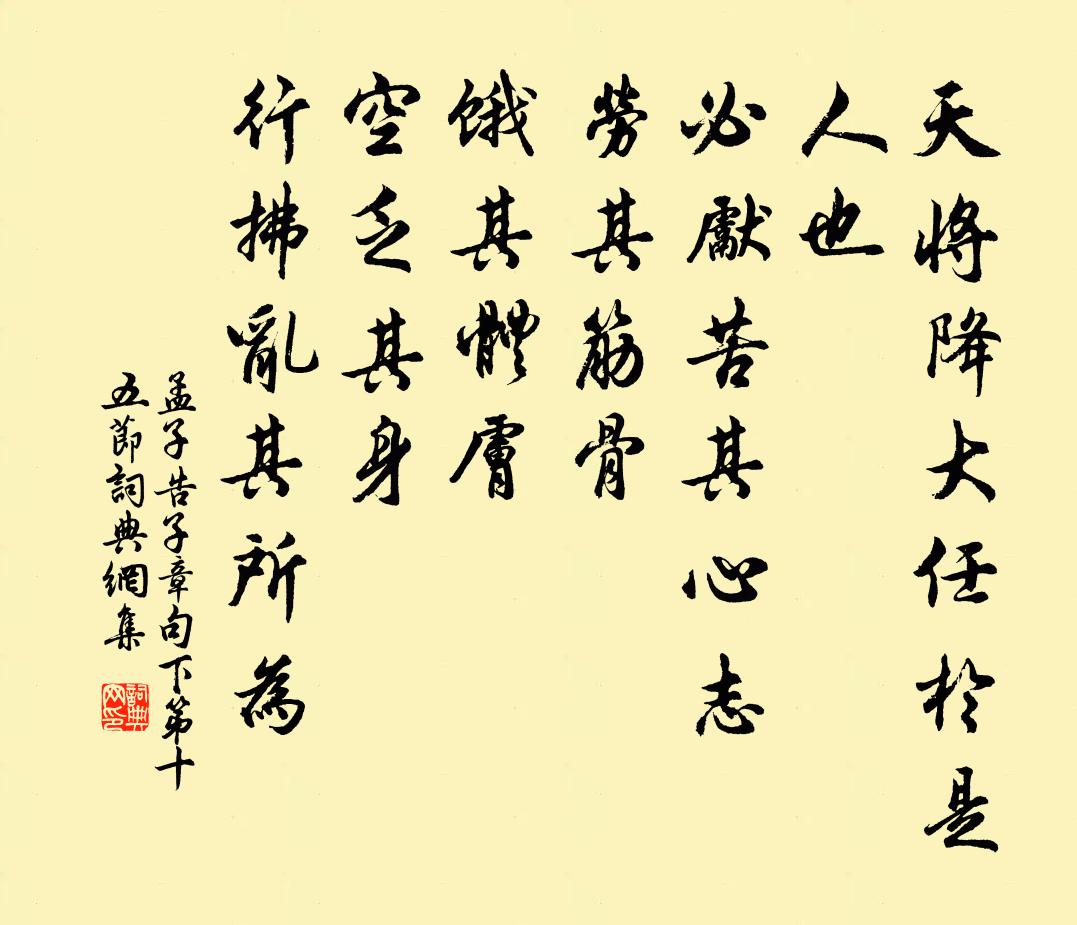 天將降大任於是
人也
必獻苦其心志
勞其筋骨
餓其體膚
空乏其身
行拂亂其所為
孟子告子章句下第十
五節詞典網集
詞典
网印